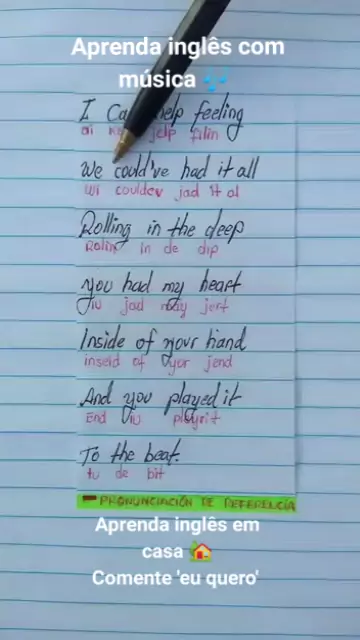 Aprenda inglês com
música 🎶
I Ca help feeling
ai jelp filin
We could've had it all
Wi couldev jad it al
Rolling in the deep
Rolin in de dip
you had my heart
iu jad may jert
Inside of your hand
inseid of yor jend
And you played it
End iu pleyrit
To the beat.
tu de bit
PRONUNCIACIÓN DE REFERENCIA
Aprenda inglês em
casa 🏡
Comente 'eu quero'